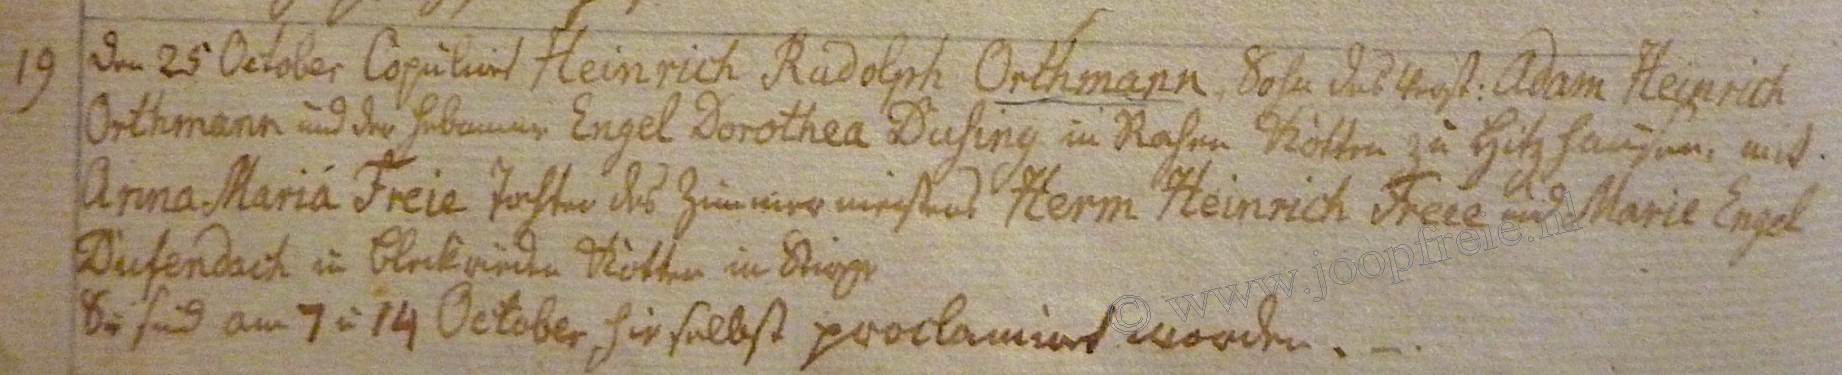 19 den 25 October Copulirt Heinrich Rudolph Orthmann, Sohn des verst: Adam Heinrich
Orthmann und der Hebamme Engel Dorothea Düsing in Rahen Kotten zu Hitzhausen, mit
Anna Maria Freie Tochter des Zimmermeisters Herm Heinrich Freie und Marie Engel
Düfendach in Kotten in
Sie sind am 7 u 14 October, hieselbst proclamirt worden. —.
© www.joopfreie.nl